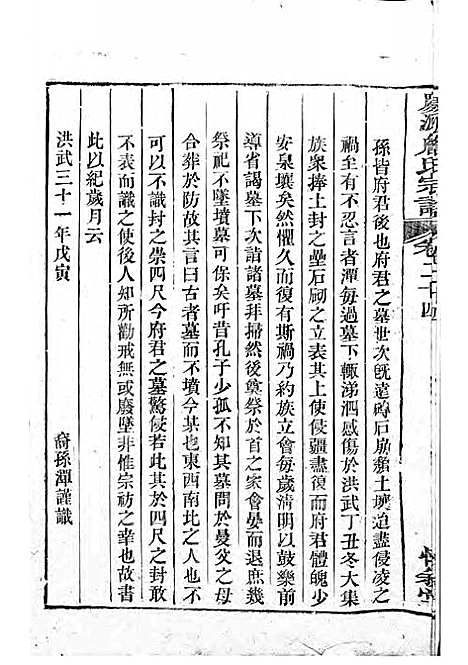 慶源詹氏宗譜 卷之二十四
孫皆府君後也府君之墓世次旣遠磚石崩頹土壤迫盡侵凌之
禍至有不忍言者潭每過墓下輙涕泗感傷於洪武丁丑冬大集
族衆捧土封之壘石刷之立表其上使侵疆盡復而府君體魄少
安泉壤矣然懼久而復有斯禍乃約族立會每歲清明以鼓樂前
導省謁墓下次詣諸墓拜掃然後奠祭於首之家會晏而退庶幾
祭祀不墜墳墓可保矣吁昔孔子少孤不知其墓問於曼父之母
合葬於防故其言曰古者墓而不墳今某也東西南北之人也不
可以不識封之崇四尺今府君之墓驚侵若此其於四尺之封敢
不表而識之使後人知所勸戒無或廢墜非惟宗祊之幸也故書
此以紀歲月云
洪武三十一年戊寅 裔孫潭謹識